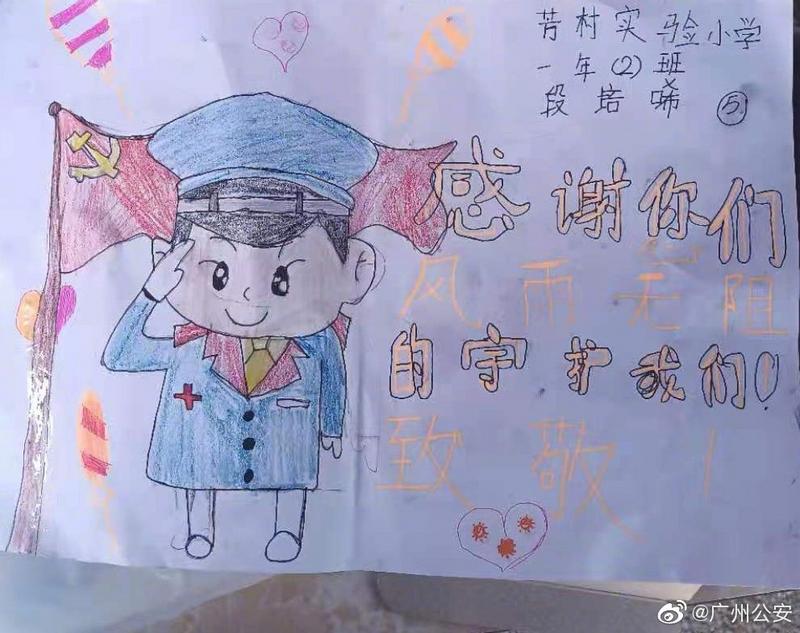 芳村实验小学
一年(2)班
段培唏 ⑤
感谢你们
风雨无阻
的守护我们!
致敬!
@广州公安